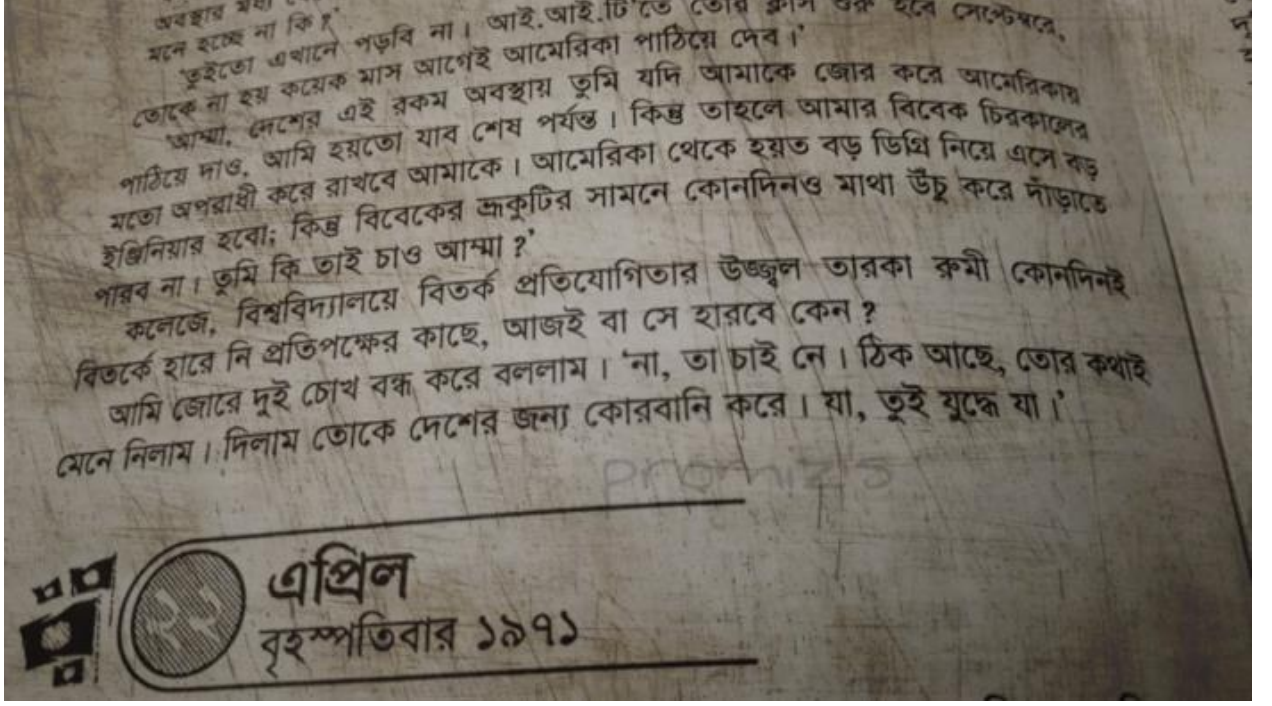 অবস্থার মধ্যে
মনে হচ্ছে না কি?'
'তুইতো এখানে পড়বি না। আই.আই.টি'তে তোর ক্লাস শুরু হবে সেপ্টেম্বরে,
তোকে না হয় কয়েক মাস আগেই আমেরিকা পাঠিয়ে দেব।'
'আম্মা, দেশের এই রকম অবস্থায় তুমি যদি আমাকে জোর করে আমেরিকায়
পাঠিয়ে দাও, আমি হয়তো যাব শেষ পর্যন্ত। কিন্তু তাহলে আমার বিবেক চিরকালের
মতো অপরাধী করে রাখবে আমাকে। আমেরিকা থেকে হয়ত বড় ডিগ্রি নিয়ে এসে বড়
ইঞ্জিনিয়ার হবো; কিন্তু বিবেকের ভ্রূকুটির সামনে কোনদিনও মাথা উঁচু করে দাঁড়াতে
পারব না। তুমি কি তাই চাও আম্মা?'
কলেজে, বিশ্ববিদ্যালয়ে বিতর্ক প্রতিযোগিতার উজ্জ্বল তারকা রুমী কোনদিনই
বিতর্কে হারে নি প্রতিপক্ষের কাছে, আজই বা সে হারবে কেন?
আমি জোরে দুই চোখ বন্ধ করে বললাম। 'না, তা চাই নে। ঠিক আছে, তোর কথাই
মেনে নিলাম। দিলাম তোকে দেশের জন্য কোরবানি করে। যা, তুই যুদ্ধে যা।'
promiz's
২২ এপ্রিল
বৃহস্পতিবার ১৯৭১